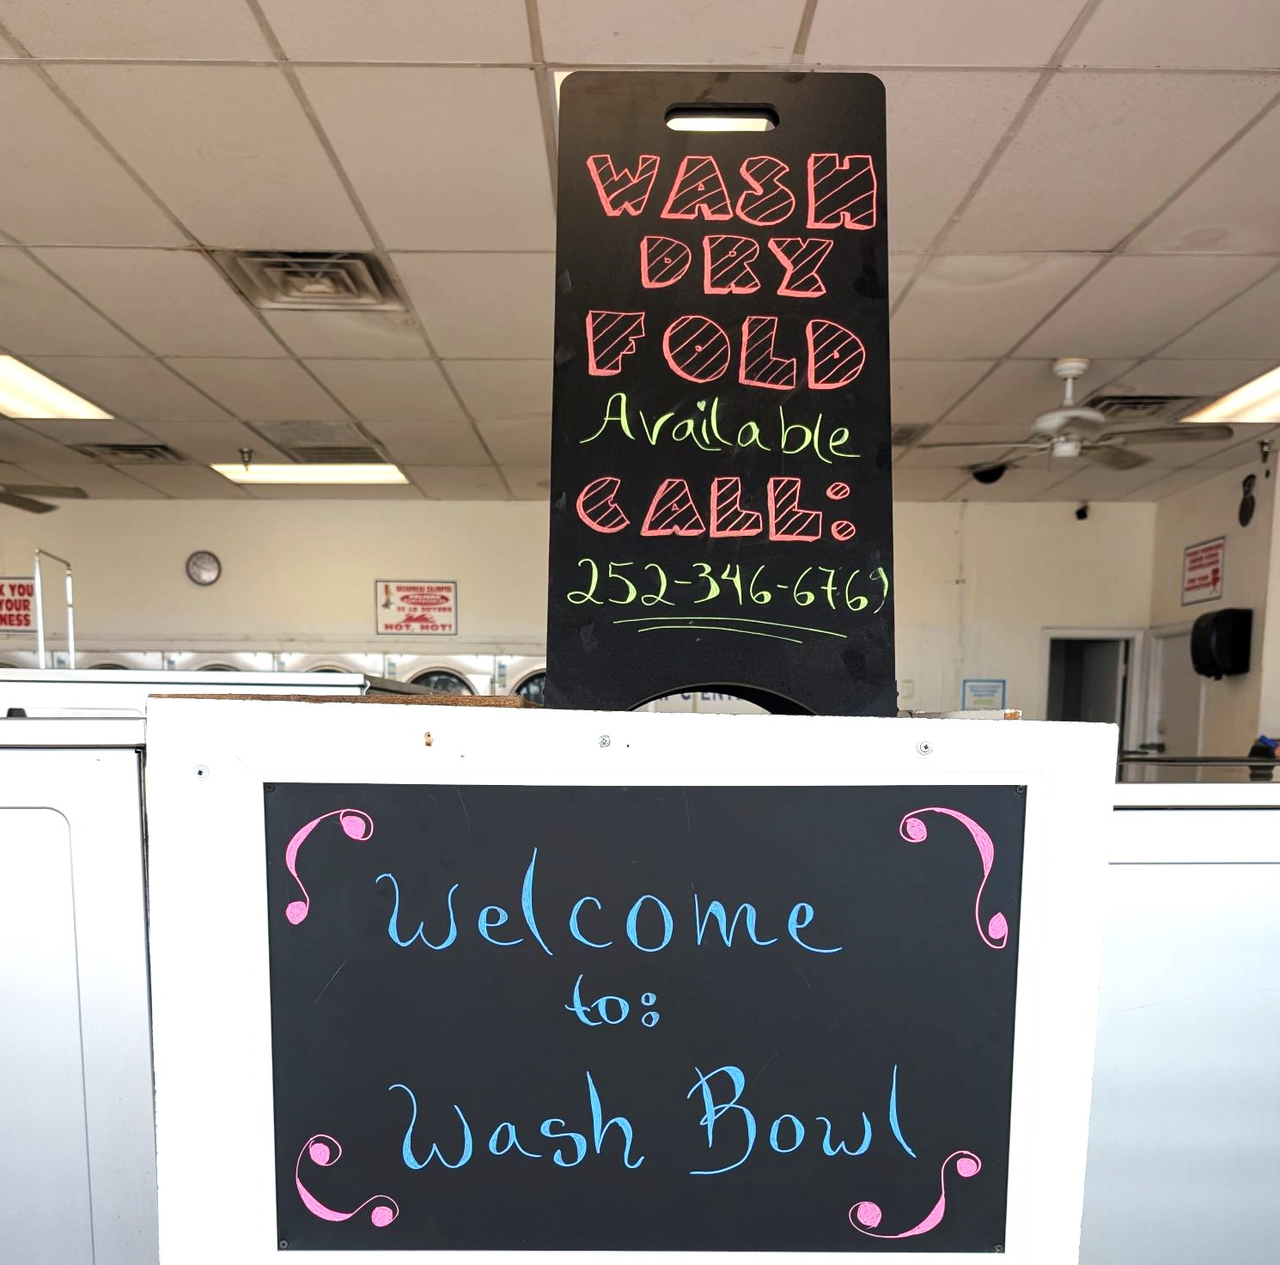 WASH
DRY
FOLD
Available
CALL:
252-346-6769
K YOU
YOUR
NESS
HOT, HOT!
Welcome
to:
Wash Bowl